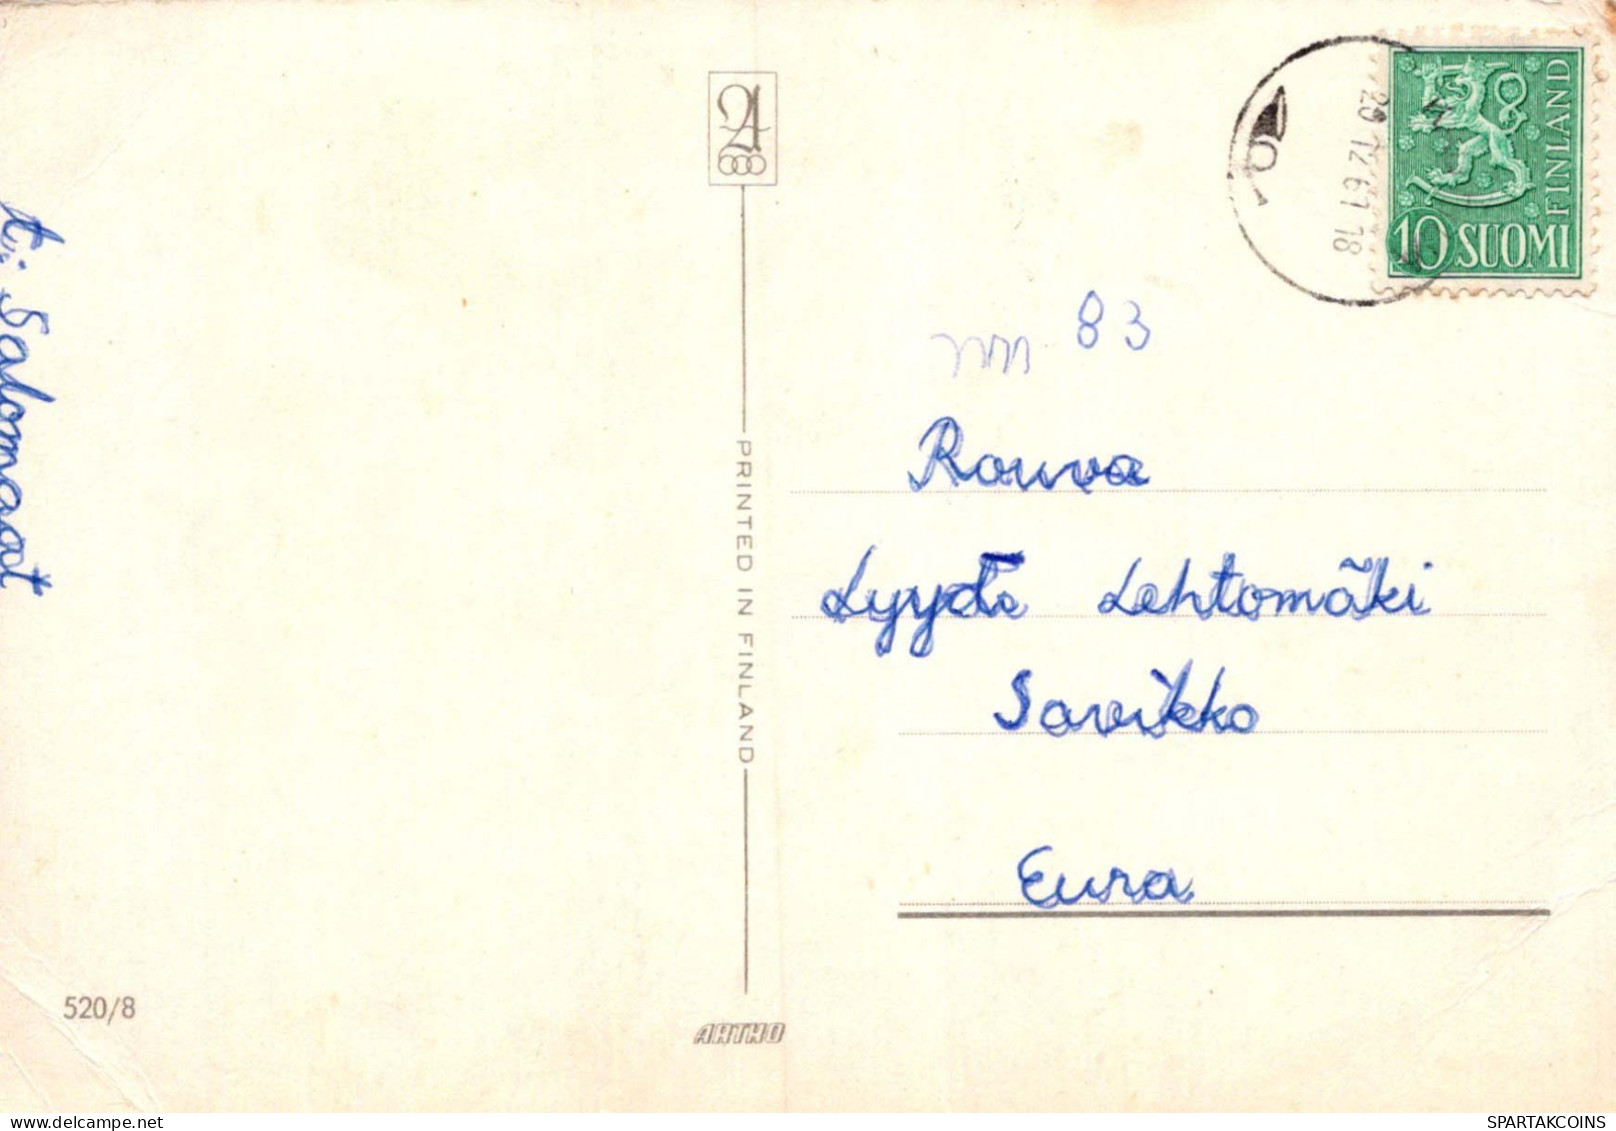 A
t: Salomaat
520/8
PRINTED IN FINLAND
ARTKO
12 61 18
10 SUOMI
FINLAND
83
Rouva
Lyydi Lehtomäki
Savikko
Eura
SPARTAKCOINS
https://www.delcampe.net